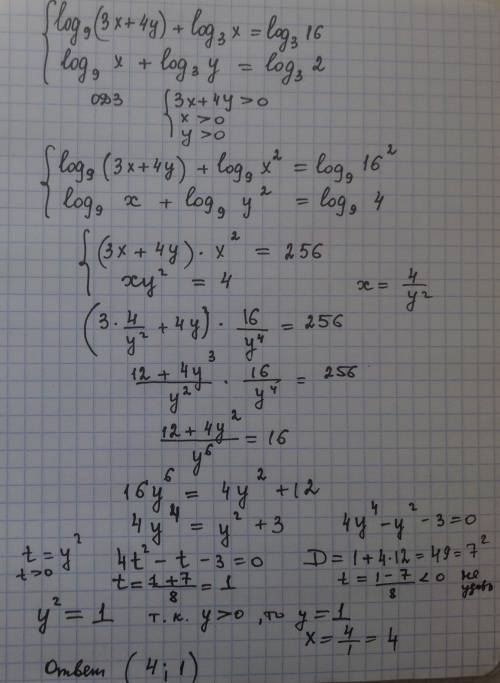 { log₉(3x+4y) + log₃ x = log₃ 16
log₉ x + log₃ y = log₃ 2
ОДЗ { 3x+4y>0
x>0
y>0
{ log₉(3x+4y) + log₉ x² = log₉ 16²
log₉ x + log₉ y² = log₉ 4
{ (3x+4y)·x² = 256
xy² = 4 x = 4/y²
(3·4/y² + 4y)·16/y⁴ = 256
(12+4y³)/y² · 16/y⁴ = 256
(12+4y²)/y⁶ = 16
16y⁶ = 4y² + 12
4y⁴ = y² + 3 4y⁴ - y² - 3 = 0
t = y² 4t² - t - 3 = 0 D = 1+4·12 = 49 = 7²
t>0 t = (1+7)/8 = 1 t = (1-7)/8 < 0 не удовл
y² = 1 т.к. y>0, то y = 1
x = 4/1 = 4
Ответ (4; 1)